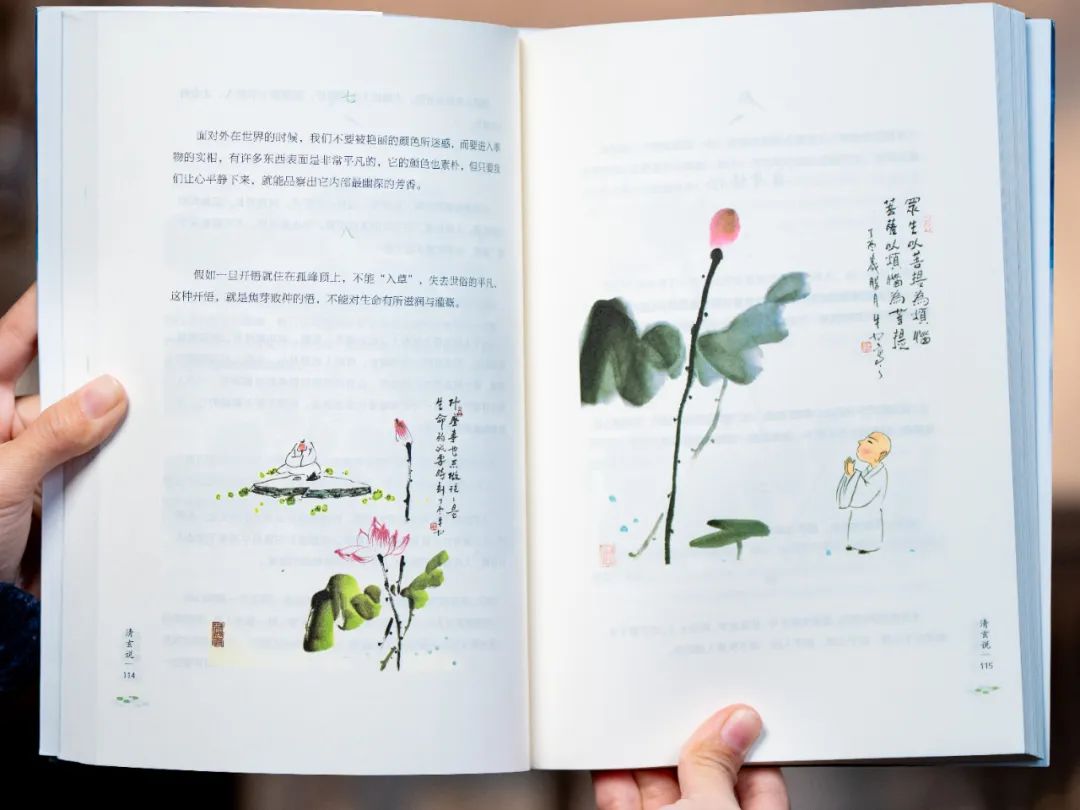 七
面对外在世界的时候，我们不要被艳丽的颜色所迷惑，而要进入事
物的实相，有许多东西表面是非常平凡的，它的颜色也素朴，但只要我
们让心平静下来，就能品察出它内部最幽深的芳香。
八
假如一旦开悟就住在孤峰顶上，不能“入草”，失去世俗的平凡，
这种开悟，就是焦芽败种的悟，不能对生命有所滋润与灌溉。
生命的
清玄说
114
眾生以菩提為煩惱
菩薩以煩惱為菩提
丁酉歲腊月
清玄说
115